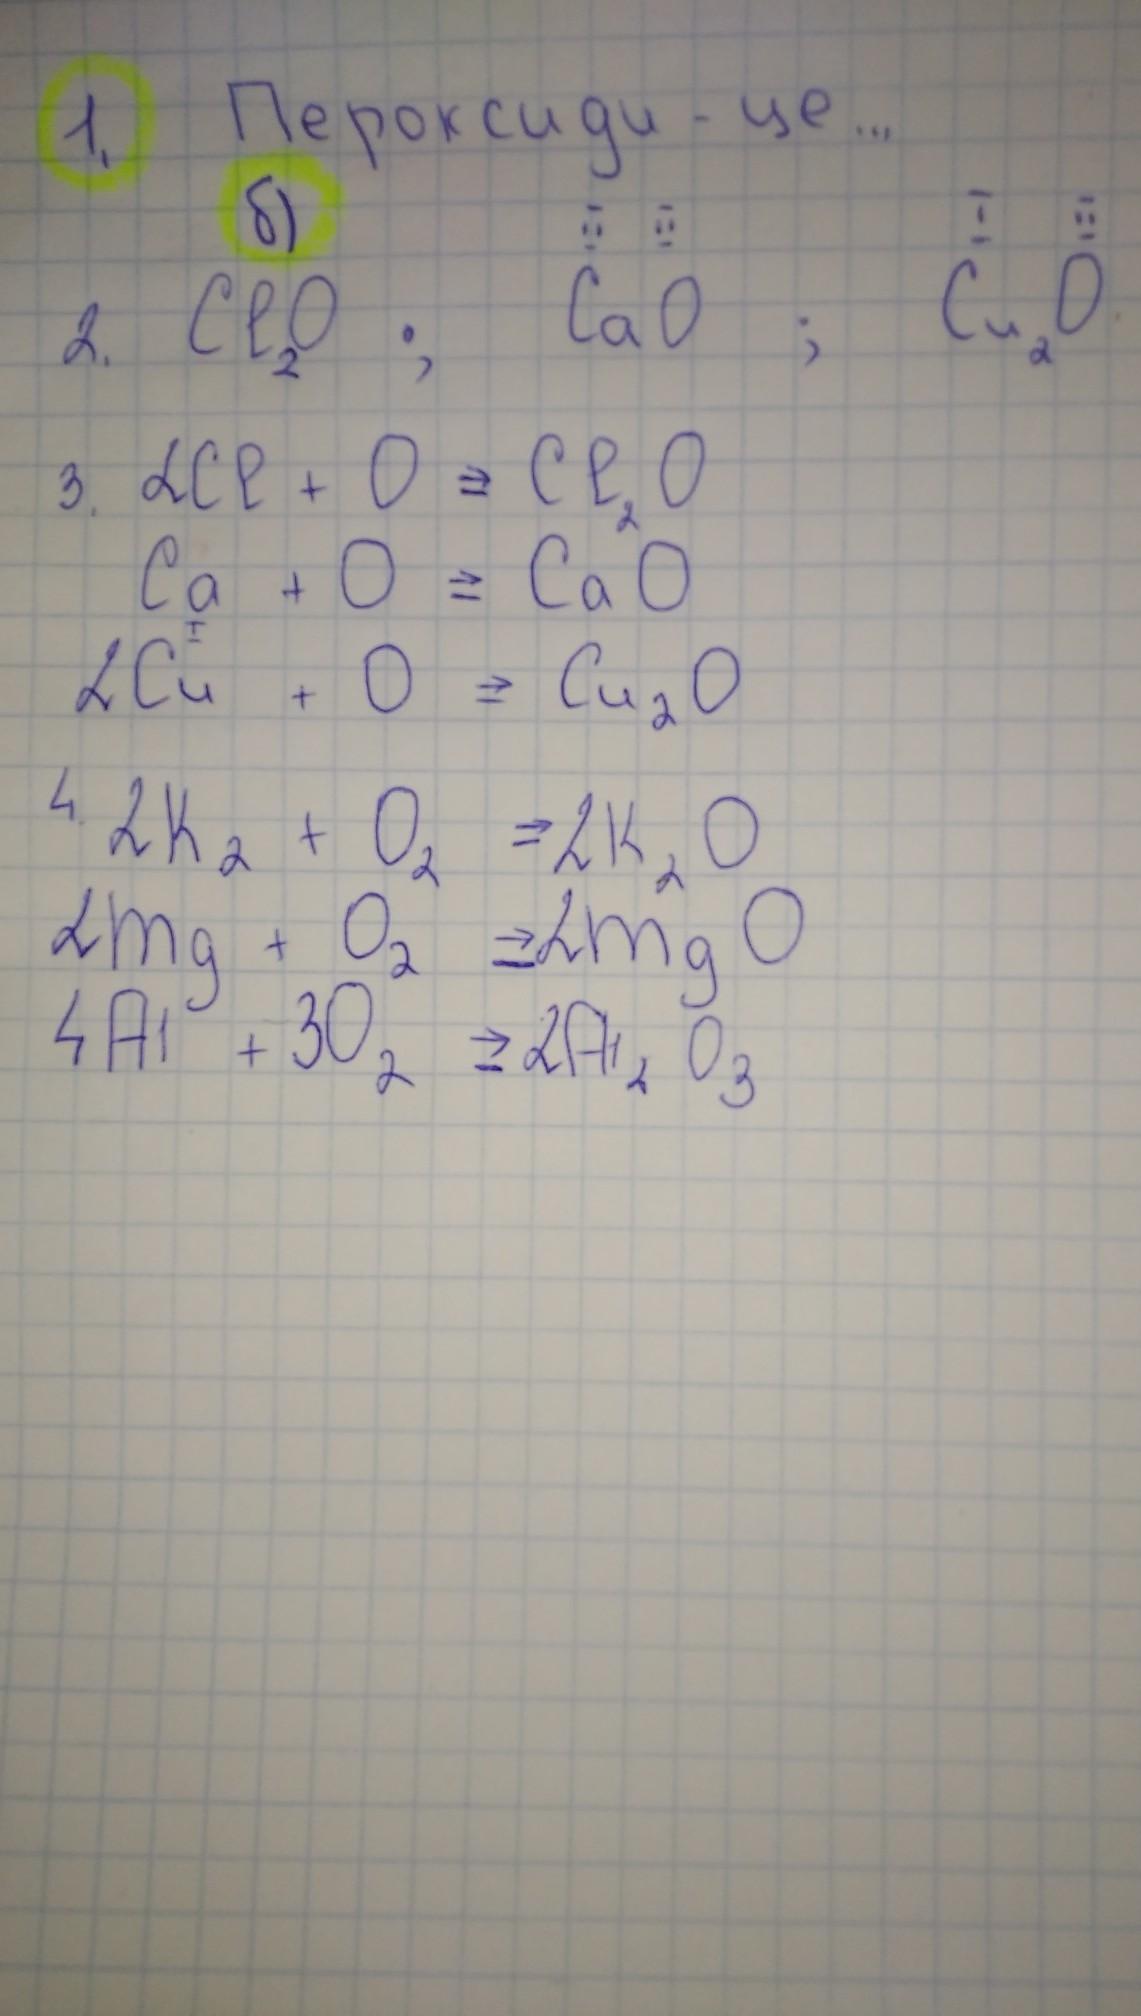 1. Пероксиди - це...
б)
II II I II
2. Cl₂O ; CaO ; Cu₂O
3. 2Cl + O ⇒ Cl₂O
Ca + O ⇒ CaO
I
2Cu + O ⇒ Cu₂O
4. 2K₂ + O₂ ⇒ 2K₂O
2Mg + O₂ ⇒ 2MgO
4Al + 3O₂ ⇒ 2Al₂O₃